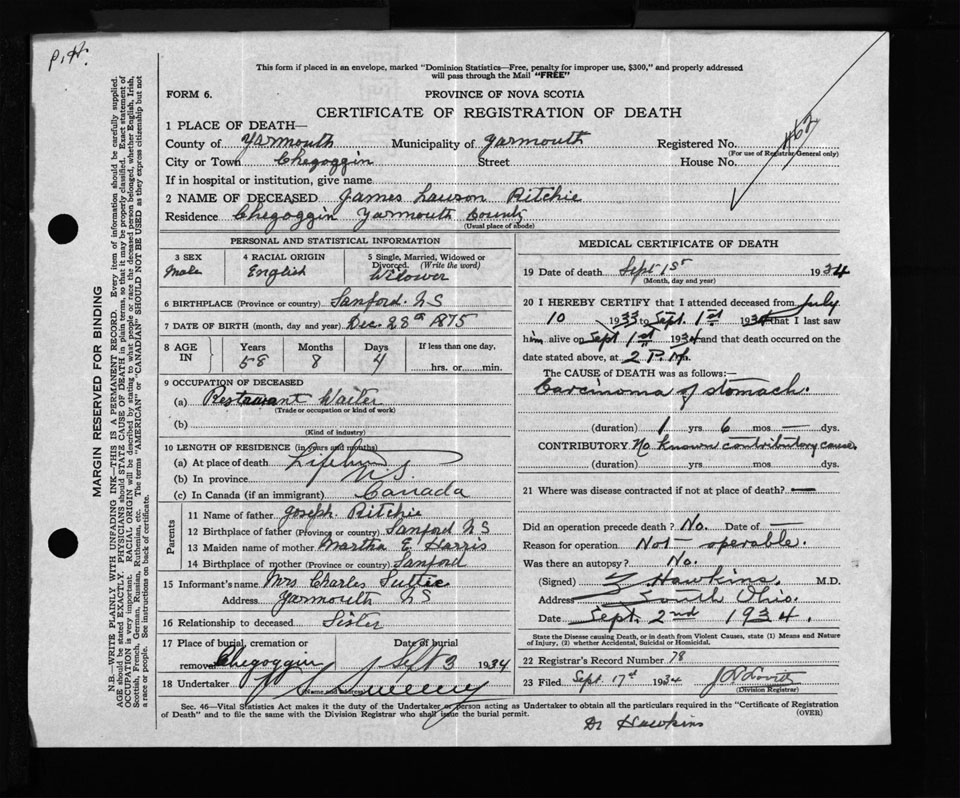 P.H.
This form if placed in an envelope, marked "Dominion Statistics—Free, penalty for improper use, $300," and properly addressed
will pass through the Mail "FREE"
FORM 6.
PROVINCE OF NOVA SCOTIA
CERTIFICATE OF REGISTRATION OF DEATH
1 PLACE OF DEATH—
County of Yarmouth Municipality of Yarmouth Registered No.
(For use of Registrar General only)
City or Town Chegoggin Street House No.
If in hospital or institution, give name
2 NAME OF DECEASED James Lawson Ritchie
Residence Chegoggin Yarmouth County
(Usual place of abode)
PERSONAL AND STATISTICAL INFORMATION
3 SEX 4 RACIAL ORIGIN 5 Single, Married, Widowed or
Divorced. (Write the word)
Male English Widower
6 BIRTHPLACE (Province or country) Sanford. NS
7 DATE OF BIRTH (month, day and year) Dec. 28th 1875
8 AGE IN Years Months Days If less than one day,
58 8 4 hrs. or min.
9 OCCUPATION OF DECEASED
(a) Restaurant Waiter
(Trade or occupation or kind of work)
(b)
(Kind of industry)
10 LENGTH OF RESIDENCE (in years and months)
(a) At place of death
(b) In province N.S
(c) In Canada (if an immigrant) Canada
Parents
11 Name of father Joseph Ritchie
12 Birthplace of father (Province or country) Sanford NS
13 Maiden name of mother Martha E. Harris
14 Birthplace of mother (Province or country) Sanford
15 Informant's name Mrs Charles Suttie
Address Yarmouth NS
16 Relationship to deceased Sister
17 Place of burial, cremation or Date of burial
removal Chegoggin Sept 3 1934
18 Undertaker Sweeny
(Name and address)
MEDICAL CERTIFICATE OF DEATH
19 Date of death Sept 1st 1934
(Month, day and year)
20 I HEREBY CERTIFY that I attended deceased from July
10 1933 to Sept. 1st 1934 that I last saw
him alive on Sept 1st 1934 and that death occurred on the
date stated above, at 2 P.M.
The CAUSE OF DEATH was as follows:—
Carcinoma of stomach.
(duration) 1 yrs 6 mos — dys.
CONTRIBUTORY No known contributory cause
(duration) yrs mos dys.
21 Where was disease contracted if not at place of death? —
Did an operation precede death? No. Date of —
Reason for operation Not — operable.
Was there an autopsy? No.
(Signed) Hawkins. M.D.
Address South Ohio.
Date Sept. 2nd 1934.
State the Disease causing Death, or in death from Violent Causes, state (1) Means and Nature
of Injury, (2) whether Accidental, Suicidal or Homicidal.
22 Registrar's Record Number 78
23 Filed Sept. 17th 1934
(Division Registrar)
Sec. 46—Vital Statistics Act makes it the duty of the Undertaker or person acting as Undertaker to obtain all the particulars required in the "Certificate of Registration
of Death" and to file the same with the Division Registrar who shall issue the burial permit. (OVER)
Dr Hawkins
MARGIN RESERVED FOR BINDING
N.B.—WRITE PLAINLY WITH UNFADING INK—THIS IS A PERMANENT RECORD. Every item of information should be carefully supplied.
AGE should be stated EXACTLY. PHYSICIANS should STATE CAUSE OF DEATH in plain terms, so that it may be properly classified. Exact statement of
OCCUPATION is very important. RACIAL ORIGIN will be described by stating to what people or race the deceased person belonged, whether English, Irish,
Scottish, French, German, Russian, Ruthenian, etc. The terms "AMERICAN" or "CANADIAN" SHOULD NOT BE USED as they express citizenship but not
a race or people. See instructions on back of certificate.